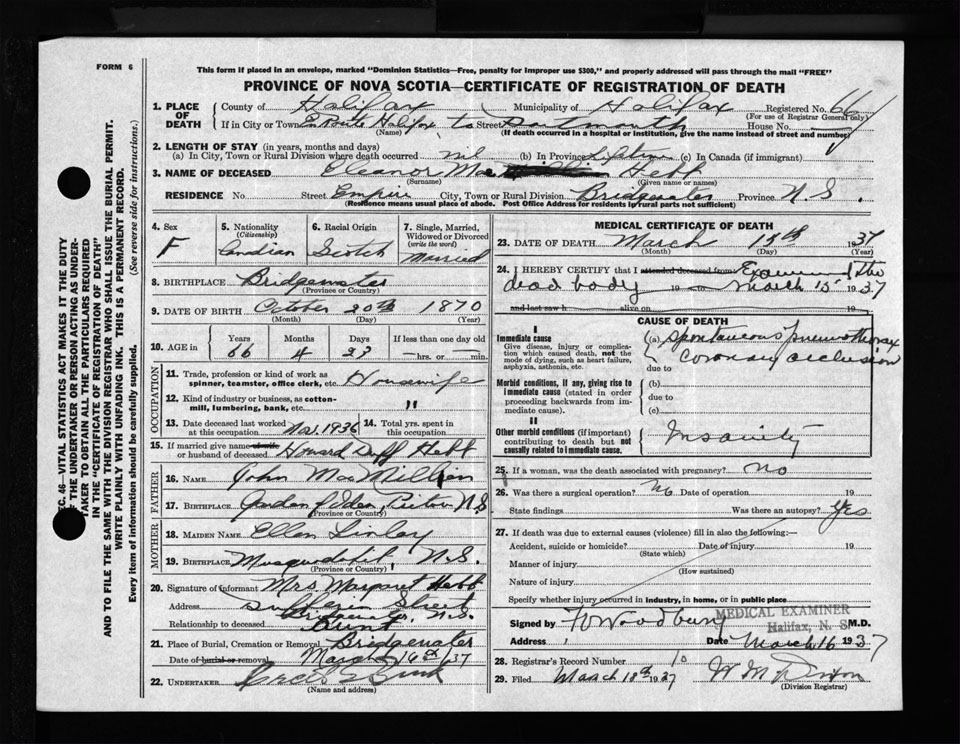 FORM 6
This form if placed in an envelope, marked "Dominion Statistics—Free, penalty for improper use $300," and properly addressed will pass through the mail "FREE"
PROVINCE OF NOVA SCOTIA—CERTIFICATE OF REGISTRATION OF DEATH
1. PLACE OF DEATH
County of Halifax Municipality of Halifax Registered No. 661
(For use of Registrar General only)
If in City or Town En Route Halifax to Street Dartmouth House No.
(Name) (If death occurred in a hospital or institution, give the name instead of street and number)
2. LENGTH OF STAY (in years, months and days)
(a) In City, Town or Rural Division where death occurred nil (b) In Province Lifetime (c) In Canada (if immigrant)
3. NAME OF DECEASED Eleanor Mac Hebb
(Surname) (Given name or names)
RESIDENCE No. Street Empire City, Town or Rural Division Bridgewater Province N.S.
(Residence means usual place of abode. Post Office Address for residents in rural parts not sufficient)
4. Sex F
5. Nationality (Citizenship) Canadian
6. Racial Origin Scotch
7. Single, Married, Widowed or Divorced (write the word) Married
8. BIRTHPLACE Bridgewater
(Province or Country)
9. DATE OF BIRTH October 20th 1870
(Month) (Day) (Year)
10. AGE in Years 66 Months 4 Days 23 If less than one day old hrs. or min.
OCCUPATION
11. Trade, profession or kind of work as spinner, teamster, office clerk, etc. Housewife
12. Kind of industry or business, as cotton-mill, lumbering, bank, etc. "
13. Date deceased last worked at this occupation Nov. 1936
14. Total yrs. spent in this occupation
15. If married give name of wife or husband of deceased Howard Duff Hebb
FATHER
16. NAME John MacMillien
17. BIRTHPLACE Garden of Eden, Pictou N.S.
(Province or Country)
MOTHER
18. MAIDEN NAME Ellen Linlay
19. BIRTHPLACE Musquodoboit, N.S.
(Province or Country)
20. Signature of informant Mrs. Margaret Hebb
Address Street N.S.
Relationship to deceased
21. Place of Burial, Cremation or Removal Bridgewater
Date of burial or removal March 16th/37
22. UNDERTAKER Cecil
(Name and address)
MEDICAL CERTIFICATE OF DEATH
23. DATE OF DEATH March 15th 1937
(Month) (Day) (Year)
24. I HEREBY CERTIFY that I attended deceased from Examined the
dead body 19 to March 15 1937
and last saw h alive on 19
CAUSE OF DEATH
I
Immediate cause
Give disease, injury or complication which caused death, not the mode of dying, such as heart failure, asphyxia, asthenia, etc.
(a) Spontaneous Pneumothorax
Coronary occlusion
due to
Morbid conditions, if any, giving rise to immediate cause (stated in order proceeding backwards from immediate cause).
(b)
due to
(c)
II
Other morbid conditions (if important) contributing to death but not causally related to immediate cause.
Insanity
25. If a woman, was the death associated with pregnancy? no
26. Was there a surgical operation? No Date of operation 19
State findings Was there an autopsy? Yes
27. If death was due to external causes (violence) fill in also the following:—
Accident, suicide or homicide? Date of injury 19
(State which)
Manner of injury
(How sustained)
Nature of injury
Specify whether injury occurred in industry, in home, or in public place
MEDICAL EXAMINER
Halifax, N. S.
Signed by Woodbury M.D.
Address Date March 16 1937
28. Registrar's Record Number 10
29. Filed March 18th 1937 W M Dixon
(Division Registrar)
SEC. 46—VITAL STATISTICS ACT MAKES IT THE DUTY
OF THE UNDERTAKER OR PERSON ACTING AS UNDER-
TAKER TO OBTAIN ALL THE PARTICULARS REQUIRED
IN THE "CERTIFICATE OF REGISTRATION OF DEATH"
AND TO FILE THE SAME WITH THE DIVISION REGISTRAR WHO SHALL ISSUE THE BURIAL PERMIT.
WRITE PLAINLY WITH UNFADING INK. THIS IS A PERMANENT RECORD.
Every item of information should be carefully supplied. (See reverse side for instructions.)